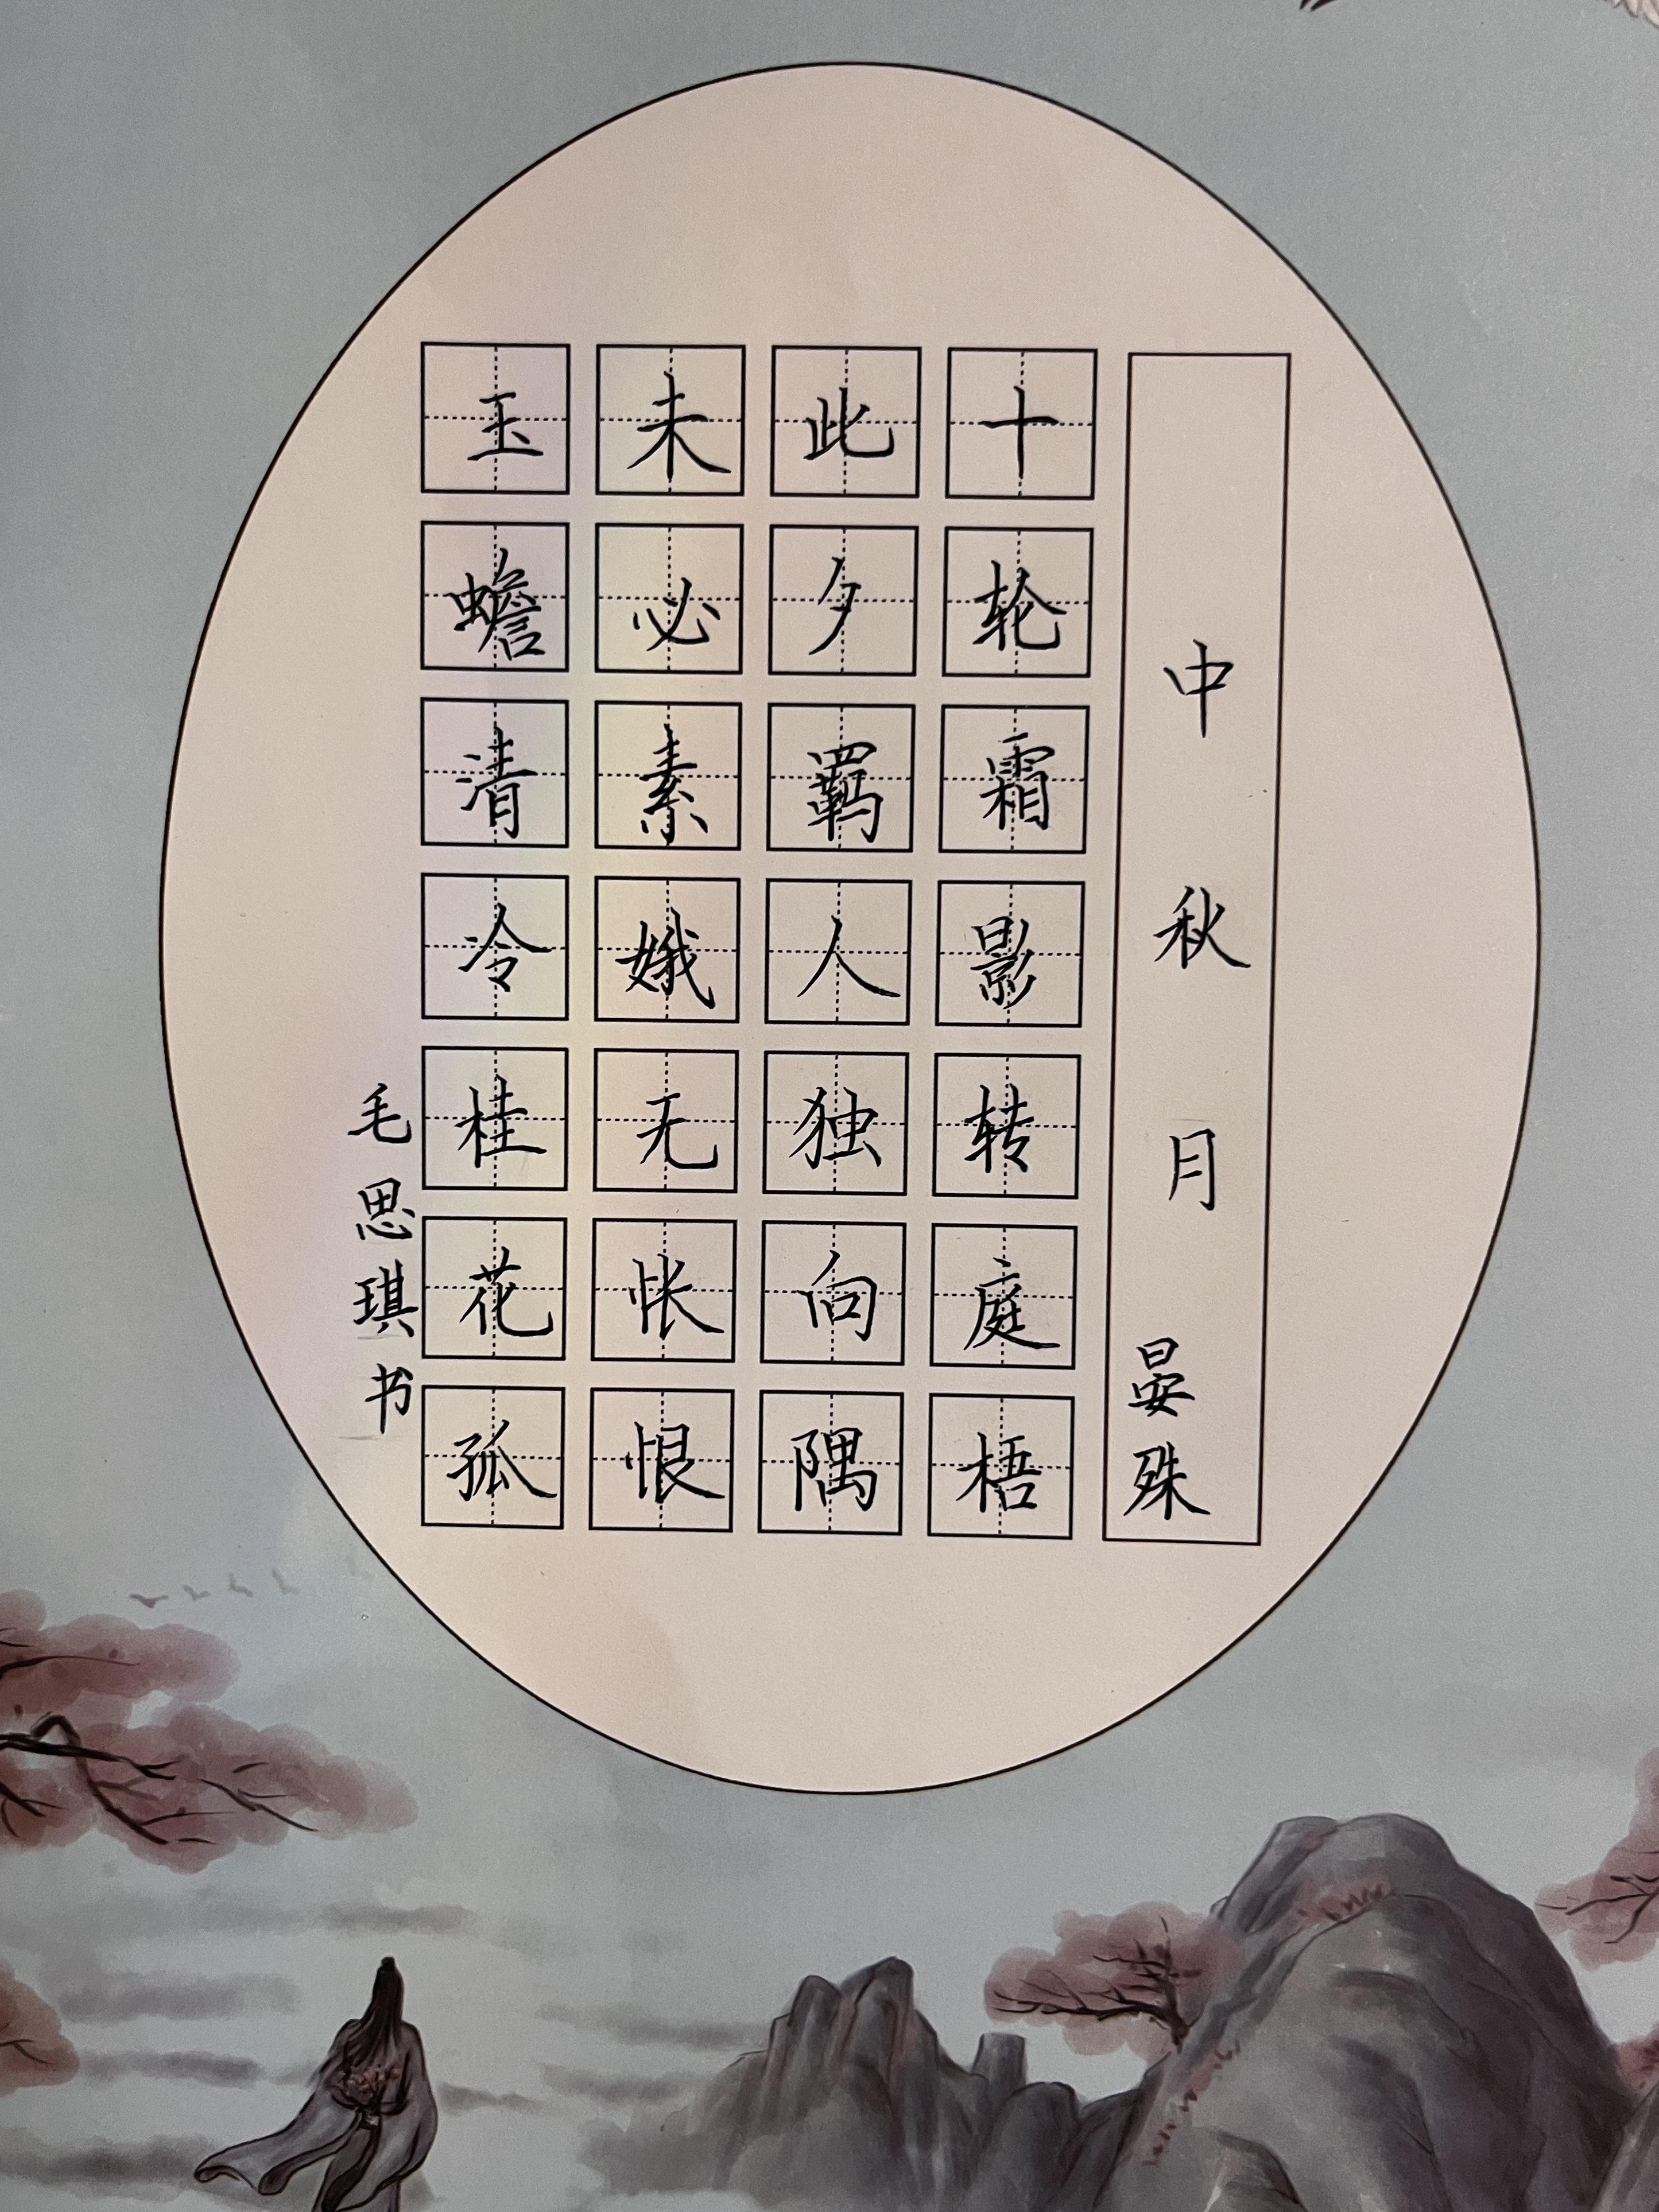 中秋月 晏殊
十轮霜影转庭梧
此夕羁人独向隅
未必素娥无怅恨
玉蟾清冷桂花孤
毛思琪书